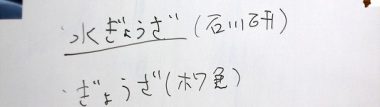 水ぎょうざ(石川研)
・ぎょうざ(ホワ包)